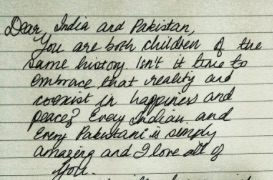 Dear, India and Pakistan,
You are both children of the
same history. Isn't it time to
embrace that reality and
coexist in happiness and
peace? Every Indian and
Every Pakistani is simply
amazing and I love all of
you.